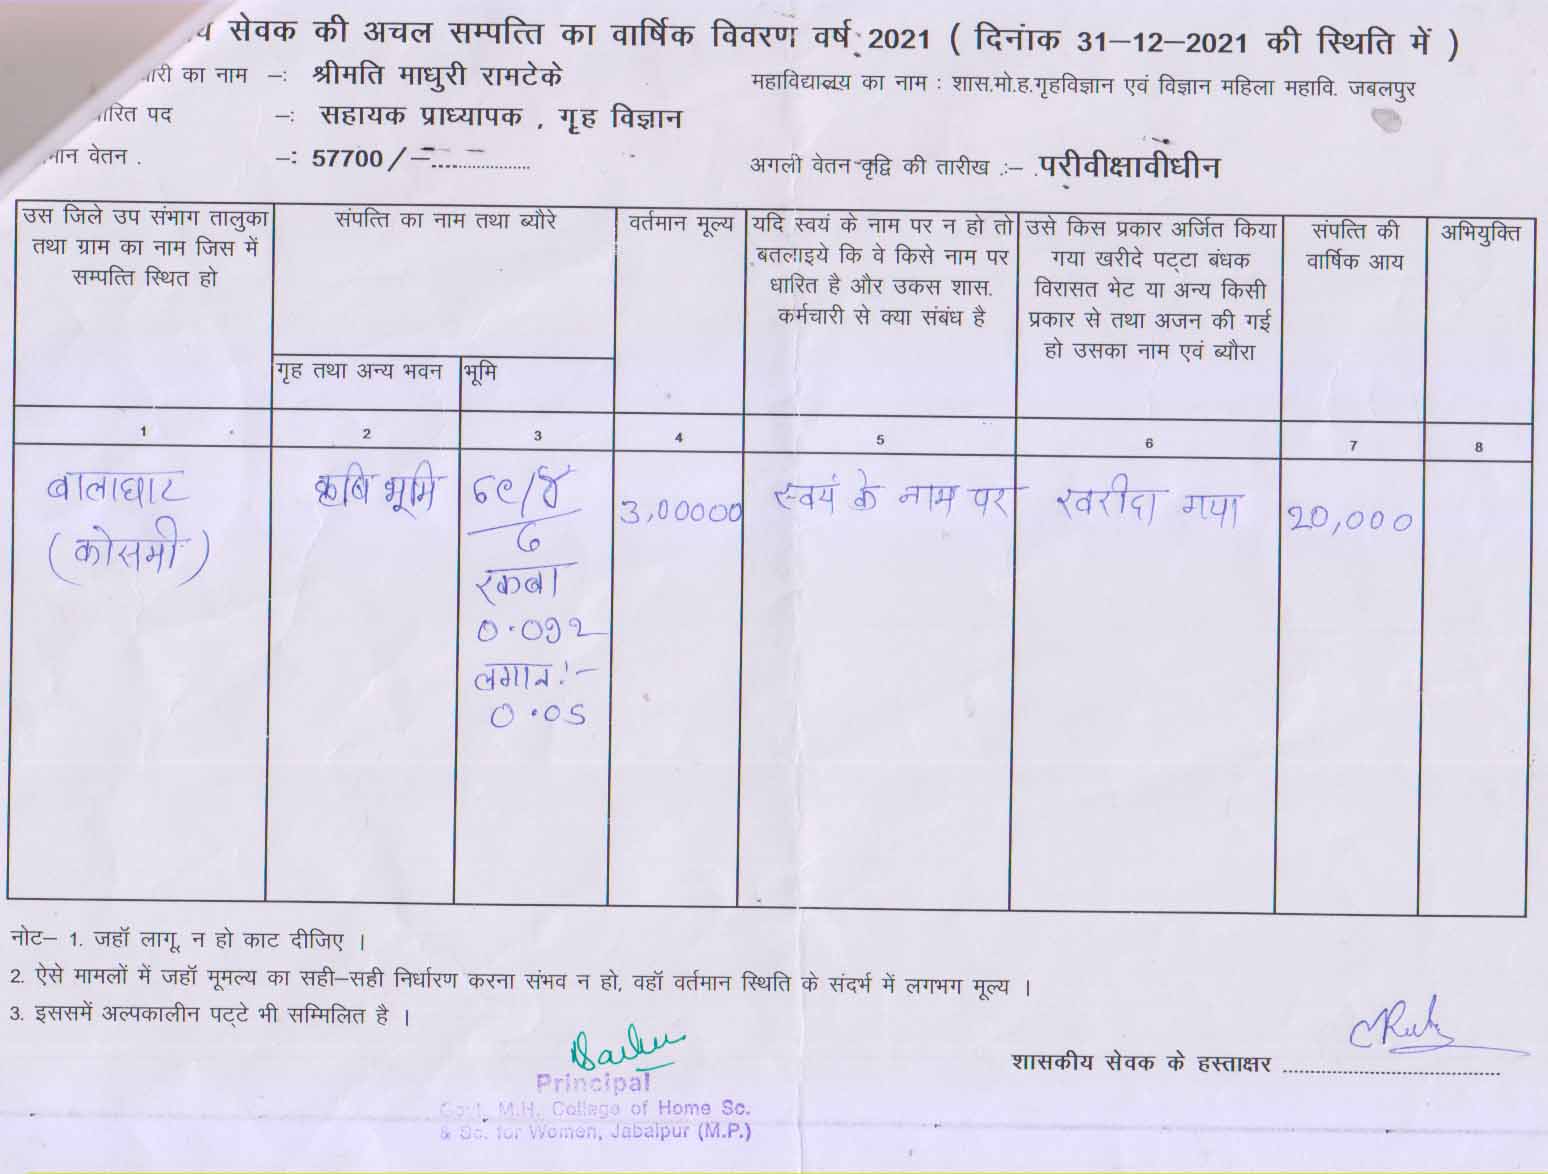 सेवक की अचल सम्पत्ति का वार्षिक विवरण वर्ष 2021 ( दिनांक 31–12–2021 की स्थिति में )
का नाम –: श्रीमति माधुरी रामटेके महाविद्यालय का नाम : शास.मो.ह.गृहविज्ञान एवं विज्ञान महिला महावि. जबलपुर
पद –: सहायक प्राध्यापक , गृह विज्ञान
वेतन . –: 57700/– अगली वेतन वृद्वि की तारीख :– परीवीक्षावीधीन
उस जिले उप संभाग तालुका
तथा ग्राम का नाम जिस में
सम्पत्ति स्थित हो
संपत्ति का नाम तथा ब्यौरे
गृह तथा अन्य भवन
भूमि
वर्तमान मूल्य
यदि स्वयं के नाम पर न हो तो
बतलाइये कि वे किसे नाम पर
धारित है और उकस शास.
कर्मचारी से क्या संबंध है
उसे किस प्रकार अर्जित किया
गया खरीदे पट्टा बंधक
विरासत भेट या अन्य किसी
प्रकार से तथा अजन की गई
हो उसका नाम एवं ब्यौरा
संपत्ति की
वार्षिक आय
अभियुक्ति
1 2 3 4 5 6 7 8
बालाघाट
(कोसमी)
कृषि भूमि
रकबा
0.092
लगान:-
0.05
3,00000
स्वयं के नाम पर
खरीदा गया
20,000
नोट– 1. जहॉ लागू न हो काट दीजिए ।
2. ऐसे मामलों में जहॉ मूमल्य का सही–सही निर्धारण करना संभव न हो, वहॉ वर्तमान स्थिति के संदर्भ में लगभग मूल्य ।
3. इससमें अल्पकालीन पट्टे भी सम्मिलित है ।
शासकीय सेवक के हस्ताक्षर
Principal
Govt. M.H. College of Home Sc.
& Sc. for Women, Jabalpur (M.P.)